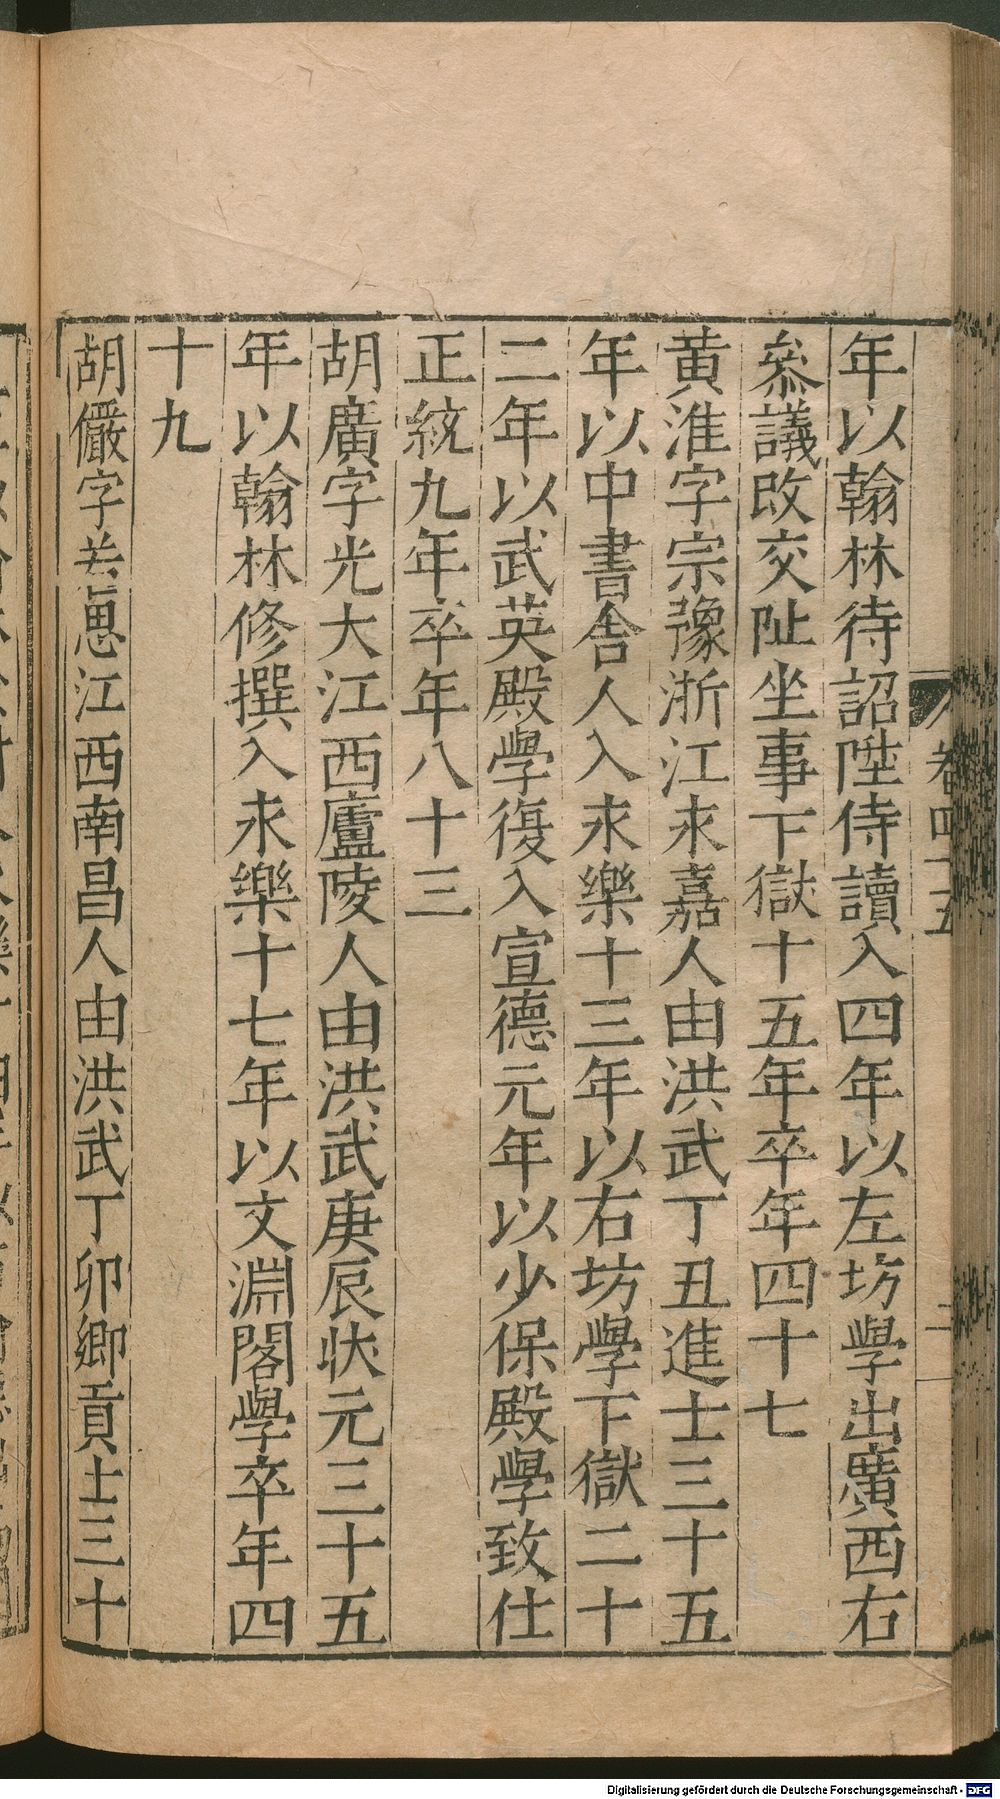 年以翰林待詔陞侍讀入四年以左坊學出廣西右
叅議改交阯坐事下獄十五年卒年四十七
黄淮字宗豫浙江永嘉人由洪武丁丑進士三十五
年以中書舍人入永樂十三年以右坊學下獄二十
二年以武英殿學復入宣德元年以少保殿學致仕
正統九年卒年八十三
胡廣字光大江西廬陵人由洪武庚辰狀元三十五
年以翰林修撰入永樂十七年以文淵閣學卒年四
十九
胡儼字若思江西南昌人由洪武丁卯鄉貢士三十
卷四十五
Digitalisierung gefördert durch die Deutsche Forschungsgemeinschaft - DFG